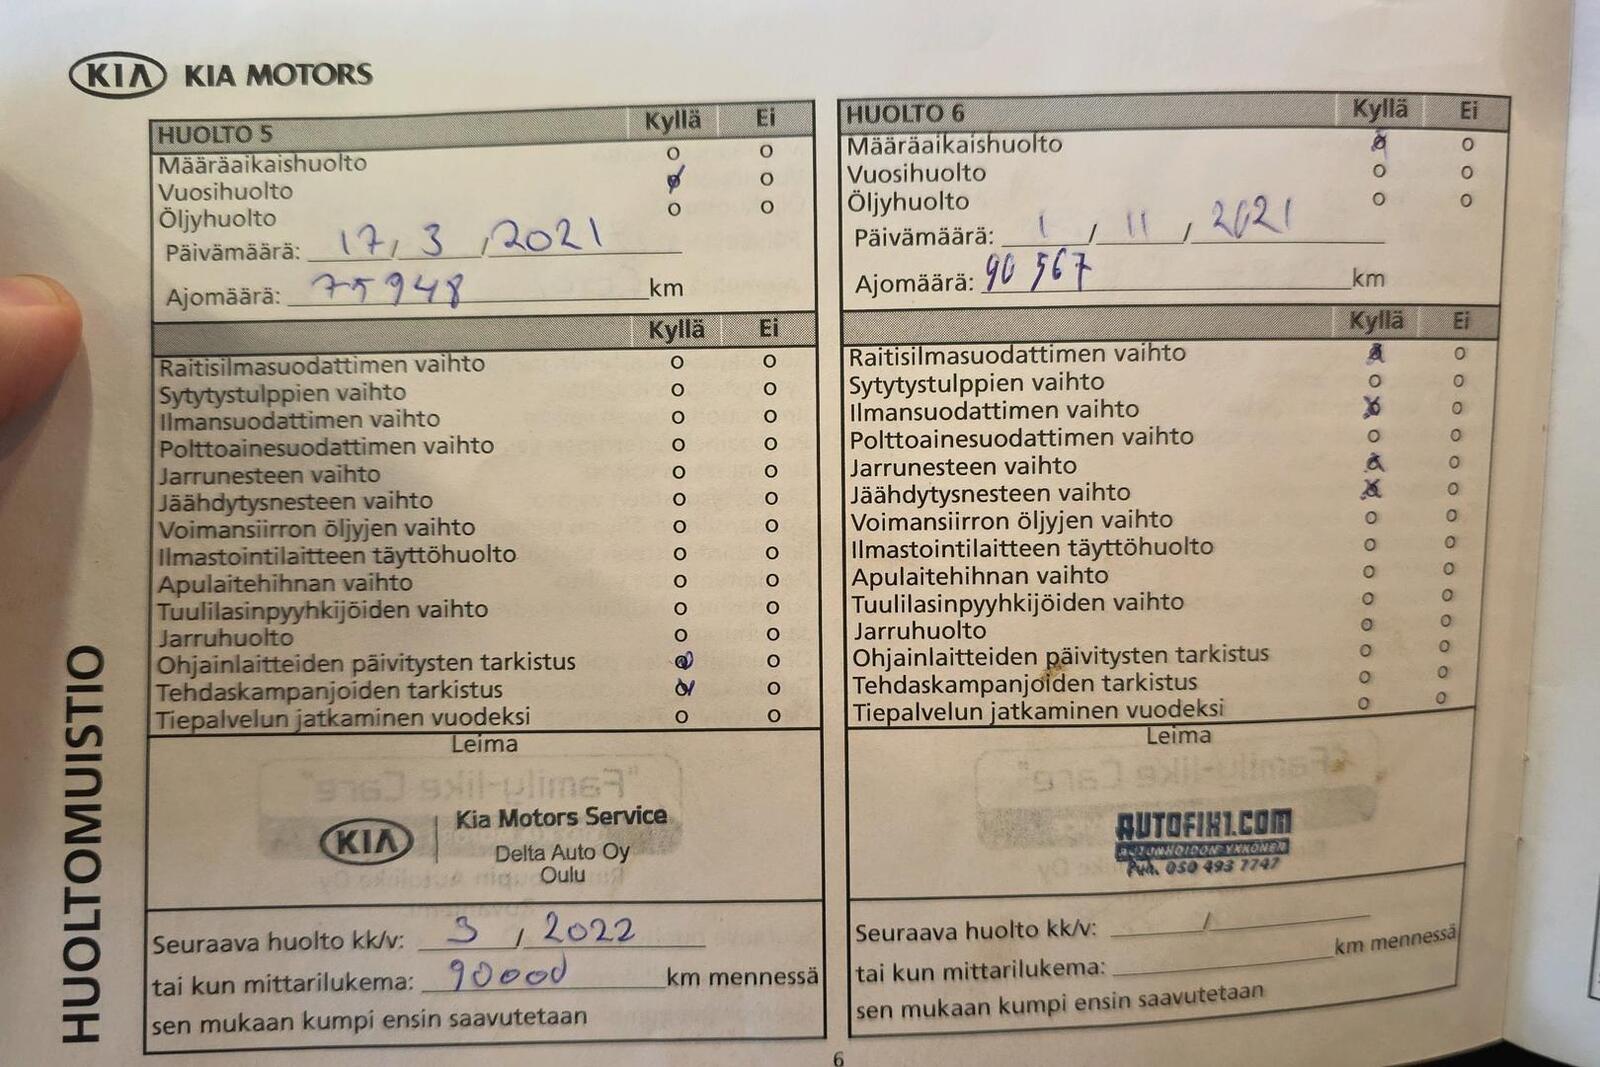 KIA KIA MOTORS
HUOLTO 5 Kyllä Ei
Määräaikaishuolto o o
Vuosihuolto o
Öljyhuolto o o
Päivämäärä: 17 / 3 / 2021
Ajomäärä: 75948 km
Kyllä Ei
Raitisilmasuodattimen vaihto o o
Sytytystulppien vaihto o o
Ilmansuodattimen vaihto o o
Polttoainesuodattimen vaihto o o
Jarrunesteen vaihto o o
Jäähdytysnesteen vaihto o o
Voimansiirron öljyjen vaihto o o
Ilmastointilaitteen täyttöhuolto o o
Apulaitehihnan vaihto o o
Tuulilasinpyyhkijöiden vaihto o o
Jarruhuolto o o
Ohjainlaitteiden päivitysten tarkistus o
Tehdaskampanjoiden tarkistus o
Tiepalvelun jatkaminen vuodeksi o o
Leima
KIA
Kia Motors Service
Delta Auto Oy
Oulu
Seuraava huolto kk/v: 3 / 2022
tai kun mittarilukema: 90000 km mennessä
sen mukaan kumpi ensin saavutetaan
HUOLTO 6 Kyllä Ei
Määräaikaishuolto o
Vuosihuolto o o
Öljyhuolto o o
Päivämäärä: 1 / 11 / 2021
Ajomäärä: 90 567 km
Kyllä Ei
Raitisilmasuodattimen vaihto o
Sytytystulppien vaihto o o
Ilmansuodattimen vaihto o
Polttoainesuodattimen vaihto o o
Jarrunesteen vaihto o
Jäähdytysnesteen vaihto o
Voimansiirron öljyjen vaihto o o
Ilmastointilaitteen täyttöhuolto o o
Apulaitehihnan vaihto o o
Tuulilasinpyyhkijöiden vaihto o o
Jarruhuolto o o
Ohjainlaitteiden päivitysten tarkistus o o
Tehdaskampanjoiden tarkistus o o
Tiepalvelun jatkaminen vuodeksi o o
Leima
AUTOFIX1.COM
AUTONHOIDON YKKÖNEN
Puh. 050 493 7747
Seuraava huolto kk/v: /
tai kun mittarilukema: km mennessä
sen mukaan kumpi ensin saavutetaan
HUOLTOMUISTIO
6